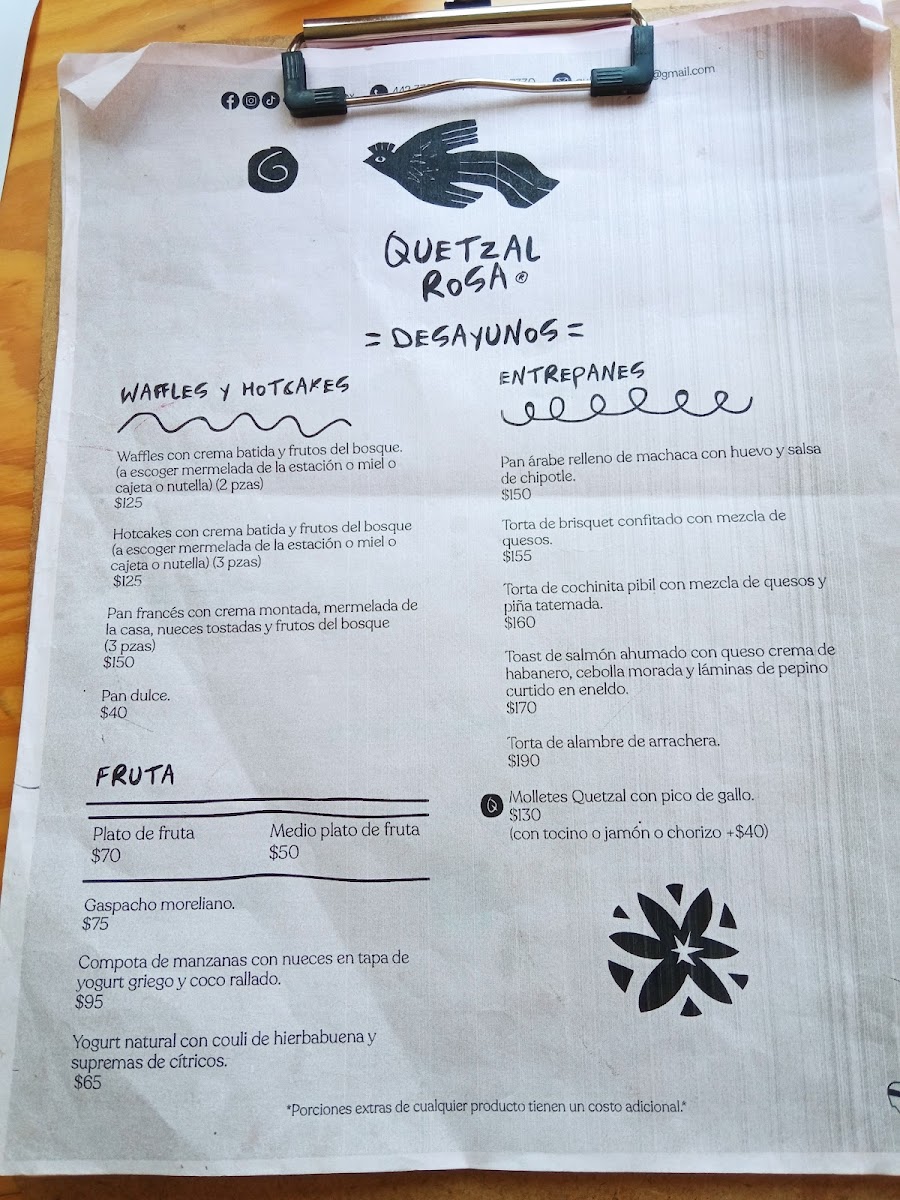 @gmail.com
QUETZAL
ROSA®
= DESAYUNOS =
WAFFLES Y HOTCAKES
Waffles con crema batida y frutos del bosque.
(a escoger mermelada de la estación o miel o
cajeta o nutella) (2 pzas)
$125
Hotcakes con crema batida y frutos del bosque
(a escoger mermelada de la estación o miel o
cajeta o nutella) (3 pzas)
$125
Pan francés con crema montada, mermelada de
la casa, nueces tostadas y frutos del bosque
(3 pzas)
$150
Pan dulce.
$40
FRUTA
Plato de fruta
$70
Medio plato de fruta
$50
Gaspacho moreliano.
$75
Compota de manzanas con nueces en tapa de
yogurt griego y coco rallado.
$95
Yogurt natural con couli de hierbabuena y
supremas de cítricos.
$65
ENTREPANES
Pan árabe relleno de machaca con huevo y salsa
de chipotle.
$150
Torta de brisquet confitado con mezcla de
quesos.
$155
Torta de cochinita pibil con mezcla de quesos y
piña tatemada.
$160
Toast de salmón ahumado con queso crema de
habanero, cebolla morada y láminas de pepino
curtido en eneldo.
$170
Torta de alambre de arrachera.
$190
Q Molletes Quetzal con pico de gallo.
$130
(con tocino o jamón o chorizo +$40)
*Porciones extras de cualquier producto tienen un costo adicional.*